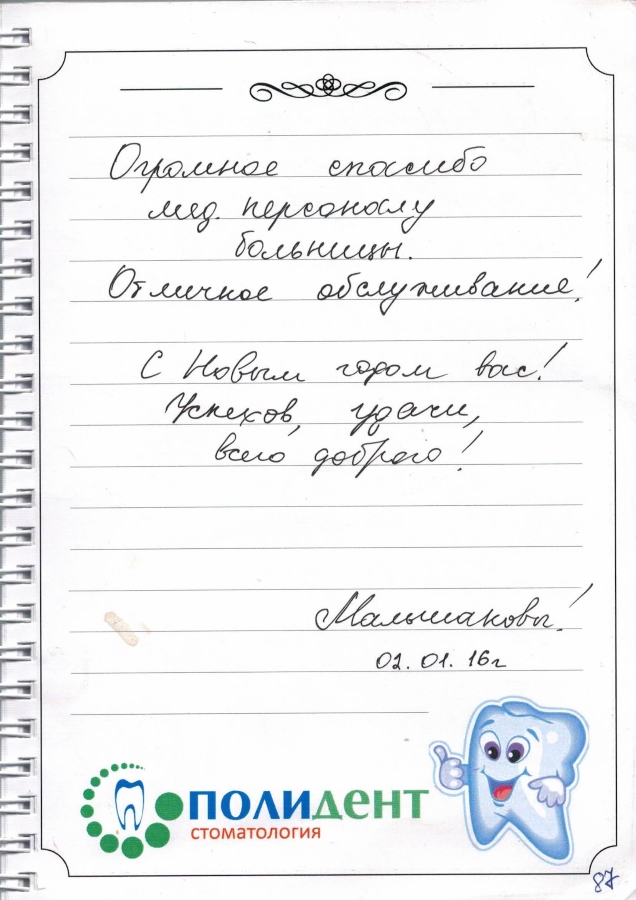 Огромное спасибо
мед. персоналу
больницы.
Отличное обслуживание!
С Новым годом вас!
Успехов, удачи,
всего доброго!
Малышаковы!
02.01.16г
ПОЛИДЕНТ
СТОМАТОЛОГИЯ
87